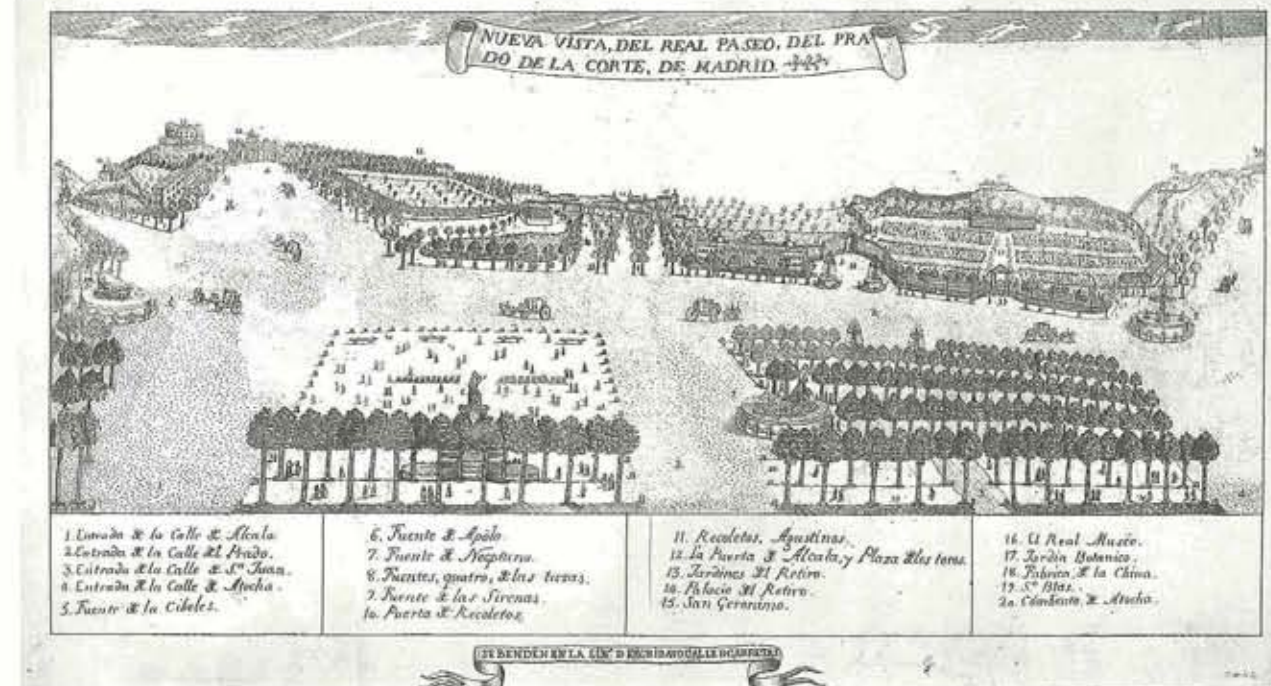 NUEVA VISTA, DEL REAL PASEO, DEL PRA
DO DE LA CORTE, DE MADRID.
1. Entrada de la Calle de Alcala.
2. Entrada de la Calle del Prado.
3. Entrada de la Calle de Sⁿ Juan.
4. Entrada de la Calle de Atocha.
5. Fuente de la Cibeles.
6. Fuente de Apolo.
7. Fuente de Neeptuno.
8. Fuentes, quatro, de las
9. Fuente de las Sirenas.
10. Puerta de Recoletos.
11. Recoletos, Agustinos.
12. La Puerta de Alcala, y Plaza de los toros.
13. Jardines del Retiro.
14. Palacio del Retiro.
15. San Geronimo.
16. El Real Museo.
17. Jardin Botanico.
18. Fabrica, de la China.
19. Sⁿ Blas.
20. Combento, de Atocha.
SE BENDEN EN LA LIBª D ESCRIBANO CALLE D CARRETAS